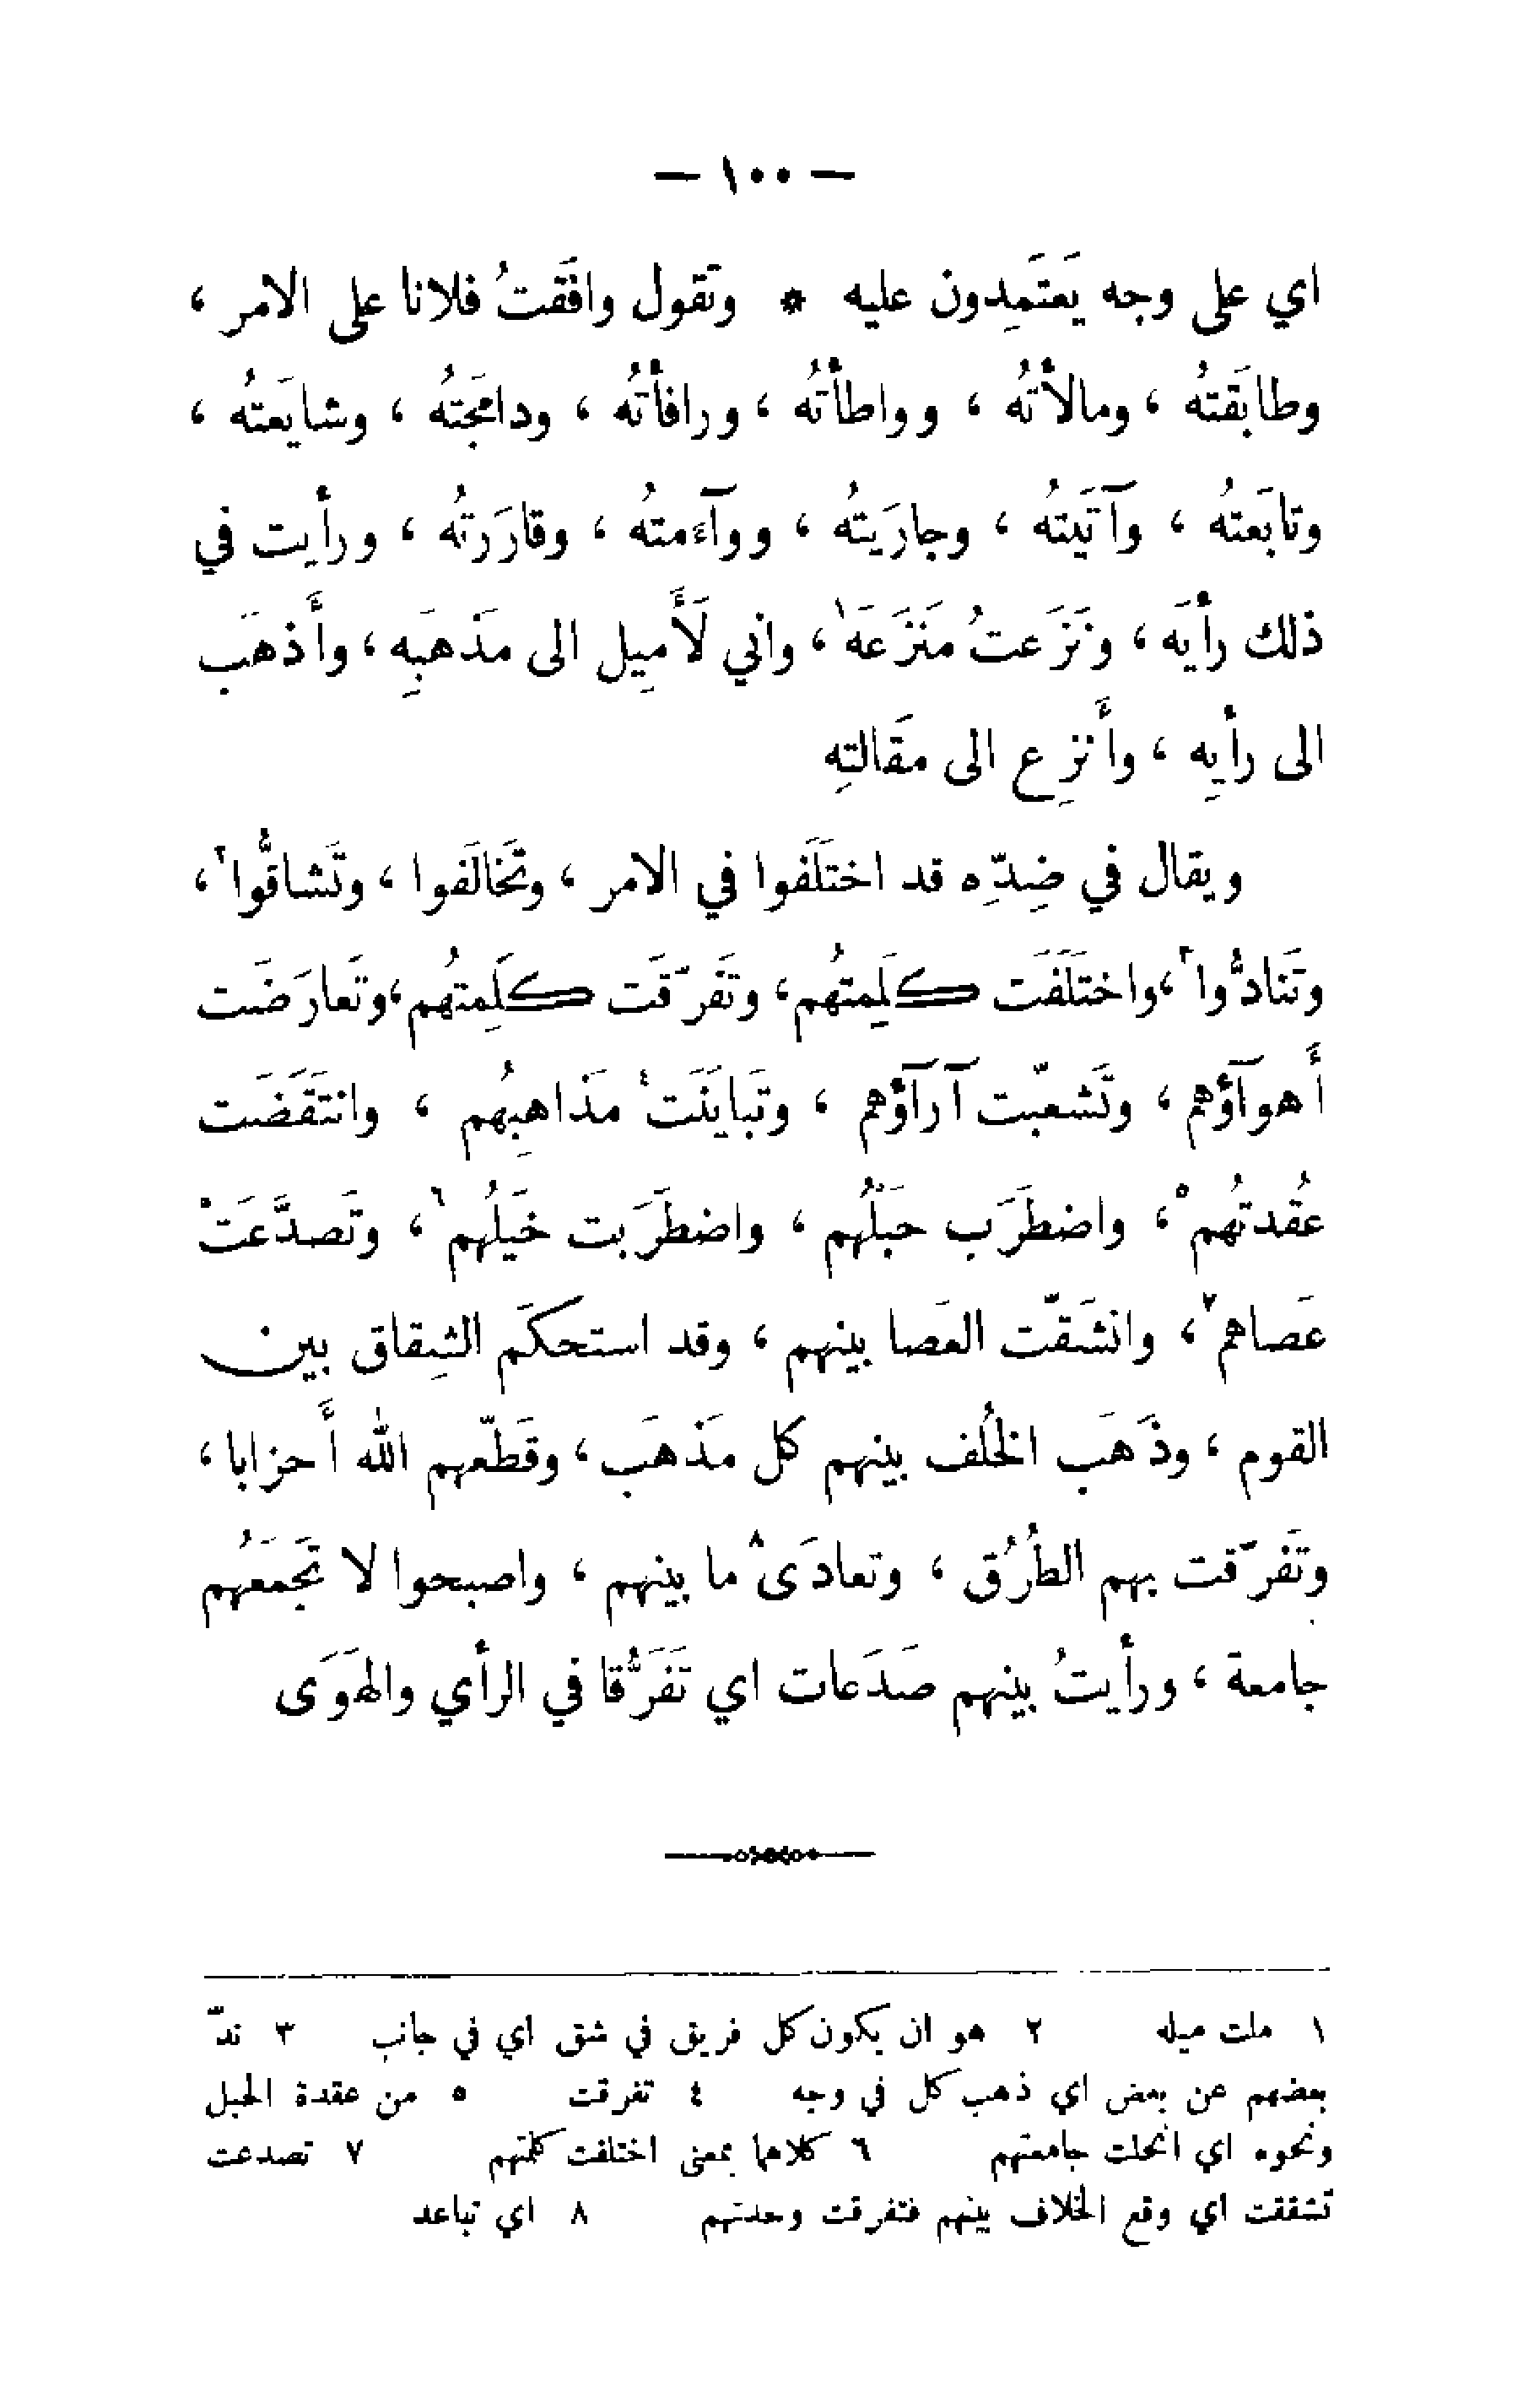 — ١٠٠ —
اي على وجه يَعتَمِدون عليه * وتَقول وافَقتُ فلانا على الامر ،
وطابَقتهُ ، ومالأْتهُ ، وواطأْتهُ ، ورافأْتهُ ، ودامَجتهُ ، وشايَعتهُ ،
وتابَعتهُ ، وآتَيتهُ ، وجارَيتهُ ، ووآءَمتهُ ، وقارَرتهُ ، ورأَيت في
ذلك رأْيَه ، ونَزَعتُ مَنزَعَه١ ، واني لَأَمِيل الى مَذهَبِه ، وأَذهَب
الى رأْيِه ، وأَنزِع الى مقَالتِه
ويقال في ضِدِّه قد اختَلَفوا في الامر ، وتَخالَفوا ، وتَشاقُّوا٢ ،
وتَنادُّوا٣ ، واختَلَفَت كلِمتهُم ، وتَفَرّقَت كلَمِتهُم ، وتَعارَضَت
أَهوآؤُهم ، وتَشعبّت آرآؤُهم ، وتَبايَنَت٤ مَذاهِبهُم ، وانتَقَضَت
عُقدتهُم٥ ، واضطَرَب حَبْلُهم ، واضطَرَبت خَيلُهم٦ ، وتَصدَّعَتْ
عَصاهم٧ ، وانشَقّت العَصا بينهم ، وقد استحكَم الشِقاق بين
القوم ، وذَهَب الخُلف بينهم كل مَذهَب ، وقَطّعهم الله أَحزابا ،
وتَفرّقت بهم الطُرُق ، وتعادَى٨ ما بينهم ، واصبحوا لا تَجمَعُهم
جامعة ، ورأَيتُ بينهم صَدَعات اي تَفَرُّقا في الرأي والهَوَى
١ ملت ميله ٢ هو ان يكون كل فريق في شق اي في جانب ٣ ندّ
بعضهم عن بعض اي ذهب كل في وجه ٤ تفرقت ٥ من عقدة الحبل
ونحوه اي انحلت جامعتهم ٦ كلاهما بمعنى اختلفت كلمتهم ٧ تصدعت
تشققت اي وقع الخلاف بينهم فتفرقت وحدتهم ٨ اي تباعد